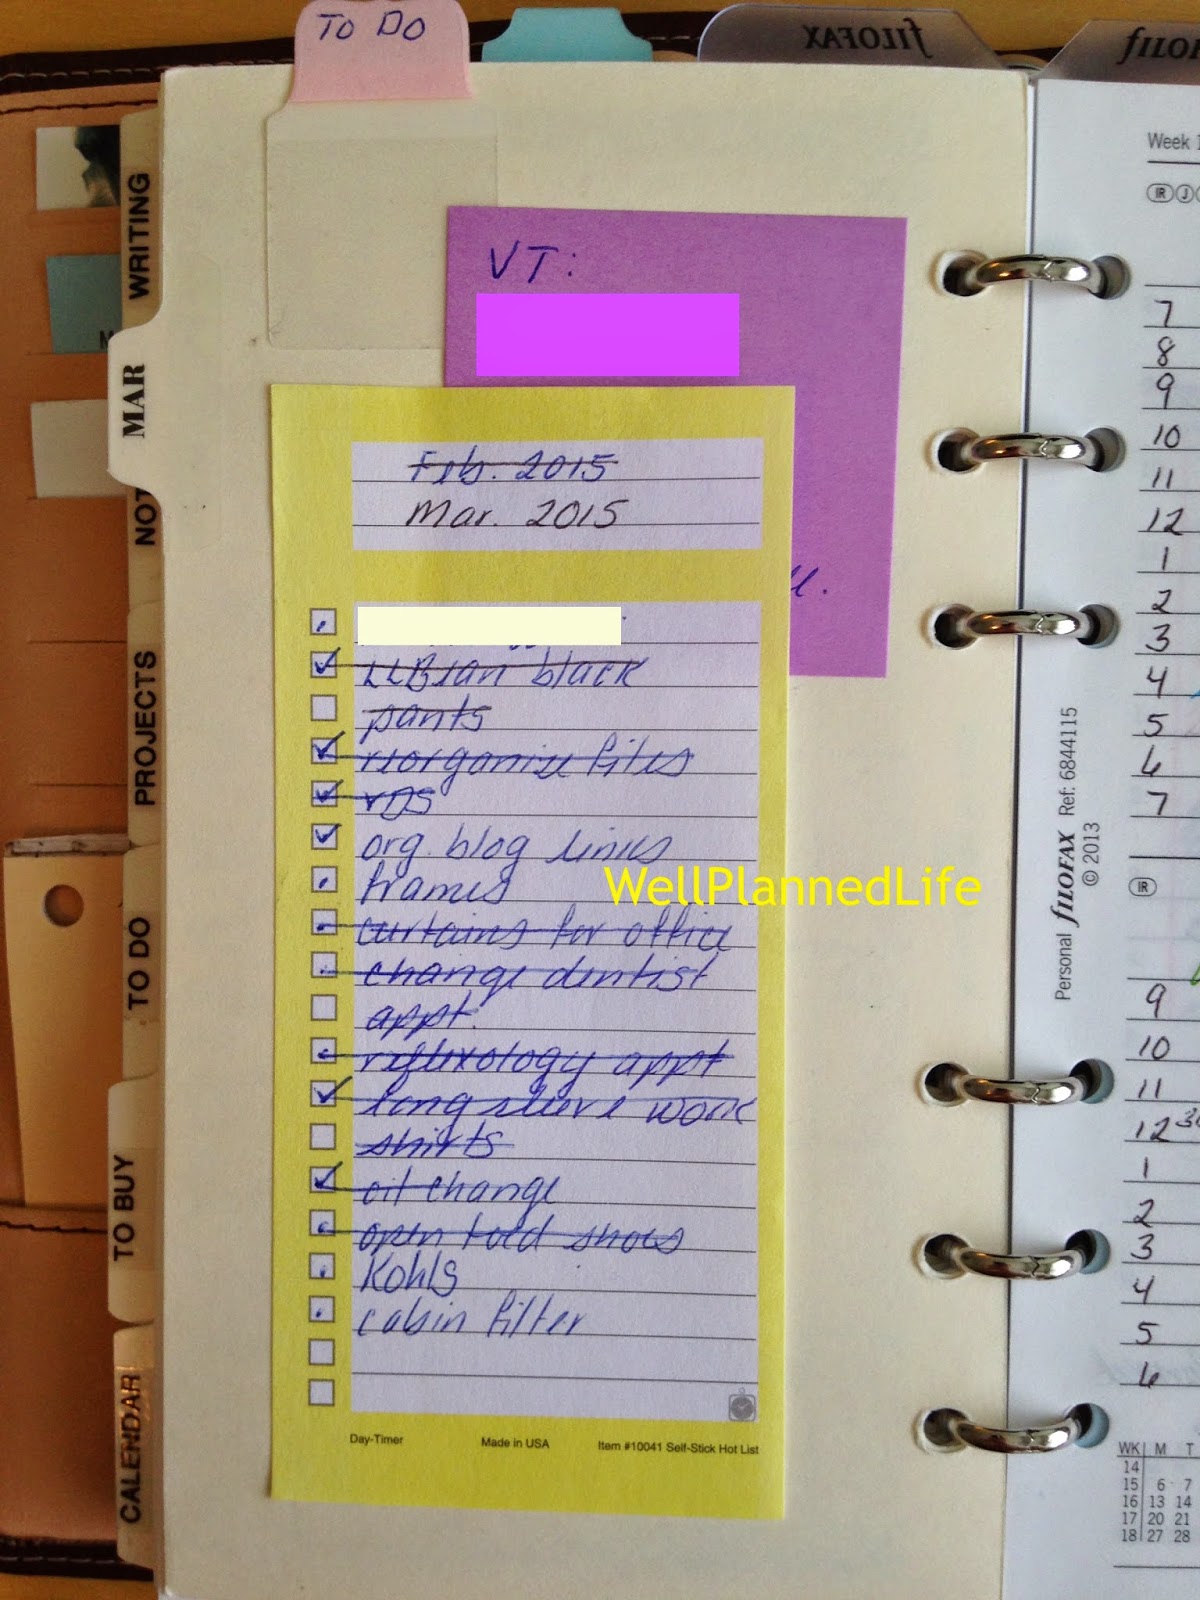 TO DO
FILOFAX
WRITING
MAR
NOT
PROJECTS
TO DO
TO BUY
CALENDAR
VT:
Feb. 2015
Mar. 2015
LLBean black
pants
reorganize files
VDS
org. blog links
frames
curtains for office
change dentist
appt.
reflexology appt
long sleeve work
shirts
oil change
open toed shoes
Kohls
cabin filter
Day-Timer Made in USA Item #10041 Self-Stick Hot List
WellPlannedLife
Week
IR J
7
8
9
10
11
12
1
2
3
4
5
6
7
IR
Personal FILOFAX Ref. 6844115
© 2013
9
10
11
12 30
1
2
3
4
5
6
WK M T
14
15 6 7
16 13 14
17 20 21
18 27 28